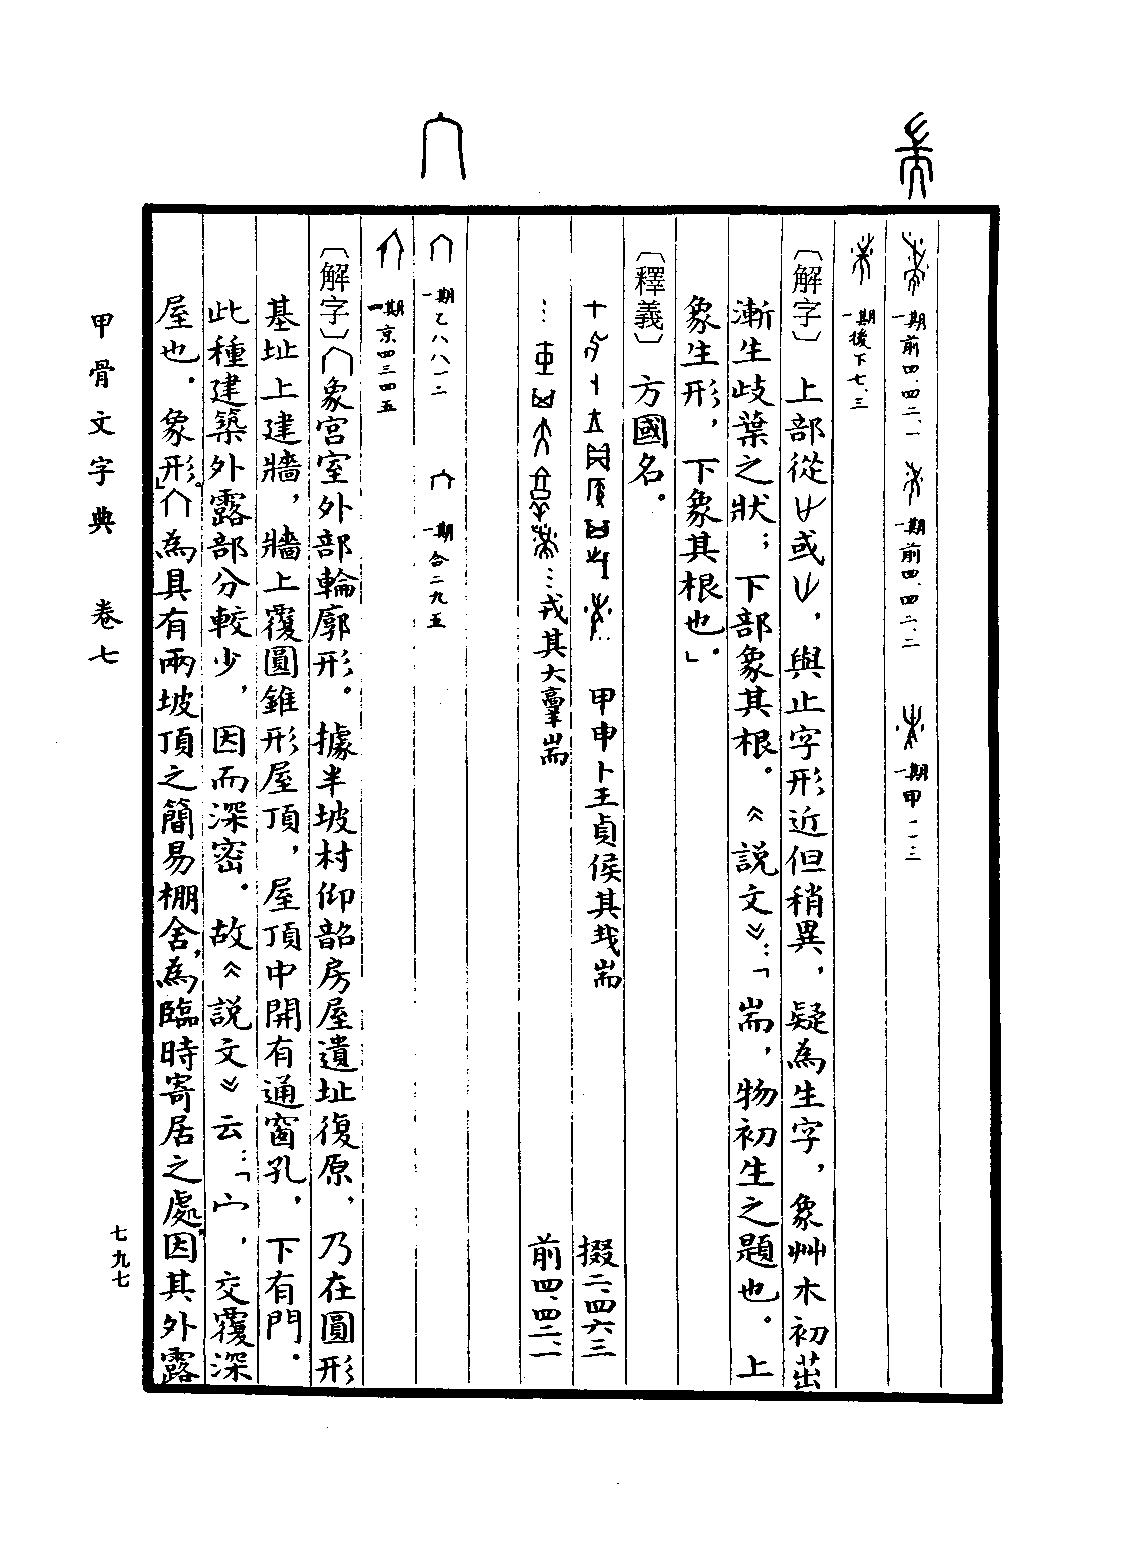 一期前四、四二、一　一期前四、四二、二　一期甲一一三
一期後下七、三
〔解字〕上部從或，與止字形近但稍異，疑為生字，象艸木初茁
漸生歧葉之狀；下部象其根。《説文》：「耑，物初生之題也。上
象生形，下象其根也。」
〔釋義〕方國名。
甲申卜王貞侯其𢦏耑　掇二、四六三
…戎其大𦎫耑　前四、四二、一
一期乙八八一二　一期合二九五
一期京四三四五
〔解字〕象宮室外部輪廓形。據半坡村仰韶房屋遺址復原，乃在圓形
基址上建牆，牆上覆圓錐形屋頂，屋頂中開有通窗孔，下有門。
此種建築外露部分較少，因而深密。故《説文》云：「宀，交覆深
屋也。象形。」為具有兩坡頂之簡易棚舍，為臨時寄居之處，因其外露
甲骨文字典　卷七
七九七